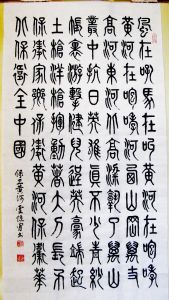 風在吼馬在叫黃河在咆哮
黃河在咆哮河西山岡萬丈
高河東河北高粱熟了萬山
叢中抗日英雄真不少青紗
帳裏游擊健兒逞英豪端起
土槍洋槍揮動著大刀長矛
保衛家鄉保衛黃河保衛華
北保衛全中國
保衛黃河